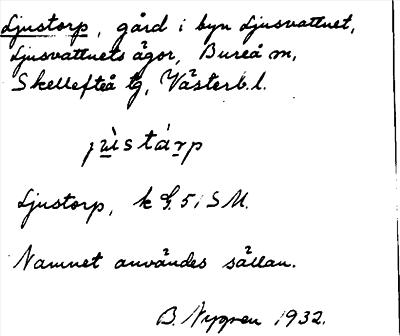 Ljustorp, gård i byn Ljusvattnet,
Ljusvattnets ägor, Bureå sn,
Skellefteå tg, Västerb. l.
Ljustorp, k
Namnet användes sällan.
B. Nygren 1932.